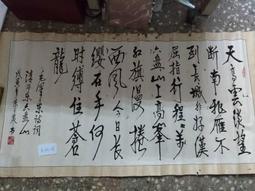 天高雲淡望
断南飛雁不
到長城非好漢
屈指行程二萬
六盘山上高峯
红旗漫捲
西風今日長
缨在手何
時缚住苍
龍
毛澤東詩詞
清平乐六盘山